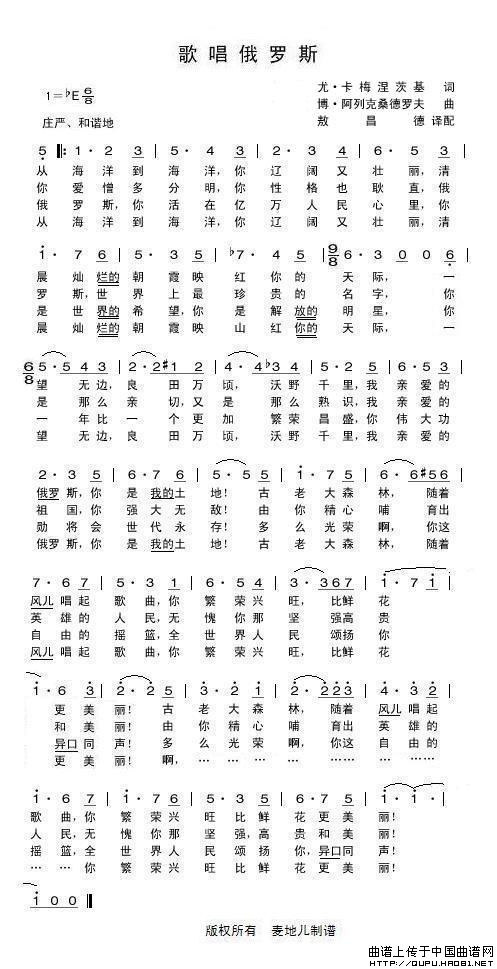 歌唱俄罗斯
1=♭E 6/8
尤·卡梅涅茨基 词
博·阿列克桑德罗夫 曲
敖昌德 译配
庄严、和谐地
5 ‖: 1· 2 3 | 5· 4 3 | 2· 3 4 | 6· 5 5 |
从 海洋到 海洋,你 辽阔又 壮丽,清
你 爱憎多 分明,你 性格也 耿直,俄
俄 罗斯,你 活在亿 万人民 心里,你
从 海洋到 海洋,你 辽阔又 壮丽,清
1· 7 6 | 5· 3 5 | ♭7· 4 5 | 9/8 6· 3 0 0 6 |
晨灿烂的 朝霞映 红你的 天际,一
罗斯,世 界上最 珍贵的 名字,你
是世界的 希望,你 是解放的 明星,你
晨灿烂的 朝霞映 山红你的 天际,一
6/8 5· 5 4 3 | 2· 2 #1 2 | 4· 4 ♭3 4 | 6· 5 3 |
望无边,良 田万 顷,沃野 千里,我 亲爱的
是那么亲 切,又是 那么 熟识,我 亲爱的
一年比一 个更加 繁荣 昌盛,你 伟大功
望无边,良 田万 顷,沃野 千里,我 亲爱的
2· 3 5 | 6· 7 6 | 5· 5 5 | 1· 7 5 | 6· 6 #5 6 |
俄罗斯,你 是我的土 地!古 老大森 林,随着
祖国,你 强大无 敌!由 你精心 哺育出
勋将会 世代永 存!多 么光荣 啊,你这
俄罗斯,你 是我的土 地!古 老大森 林,随着
7· 6 7 | 5· 3 1 | 6· 5 4 | 3· 3 6 7 | 1· 7 1 |
风儿唱起 歌曲,你 繁荣兴 旺,比鲜 花
英雄的 人民,无 愧你那 坚强高 贵
自由的 摇篮,全 世界人 民颂扬 你
风儿唱起 歌曲,你 繁荣兴 旺,比鲜 花
1· 6 3 | 2· 5 5 | 3· 2 1 | 2· 2 2 3 | 4· 3 2 |
更美 丽!古 老大森 林,随着 风儿唱起
和美 丽!由 你精心 哺育出 英雄的
异口同 声!多 么光荣 啊,你这 自由的
更美 丽!啊,…… …… …… ……
1· 6 7 | 1· 6 7 | 1· 5 3 | 6· 7 5 | 1· 1· |
歌曲,你 繁荣兴 旺比鲜 花更美 丽!
人民,无 愧你那 坚强,高 贵和美 丽!
摇篮,全 世界人 民颂扬 你,异口同 声!
……你 繁荣兴 旺比鲜 花更美 丽!
1 0 0 ‖
版权所有 麦地儿制谱
曲谱上传于中国曲谱网
HTTP://QUPU.HAO81.NET